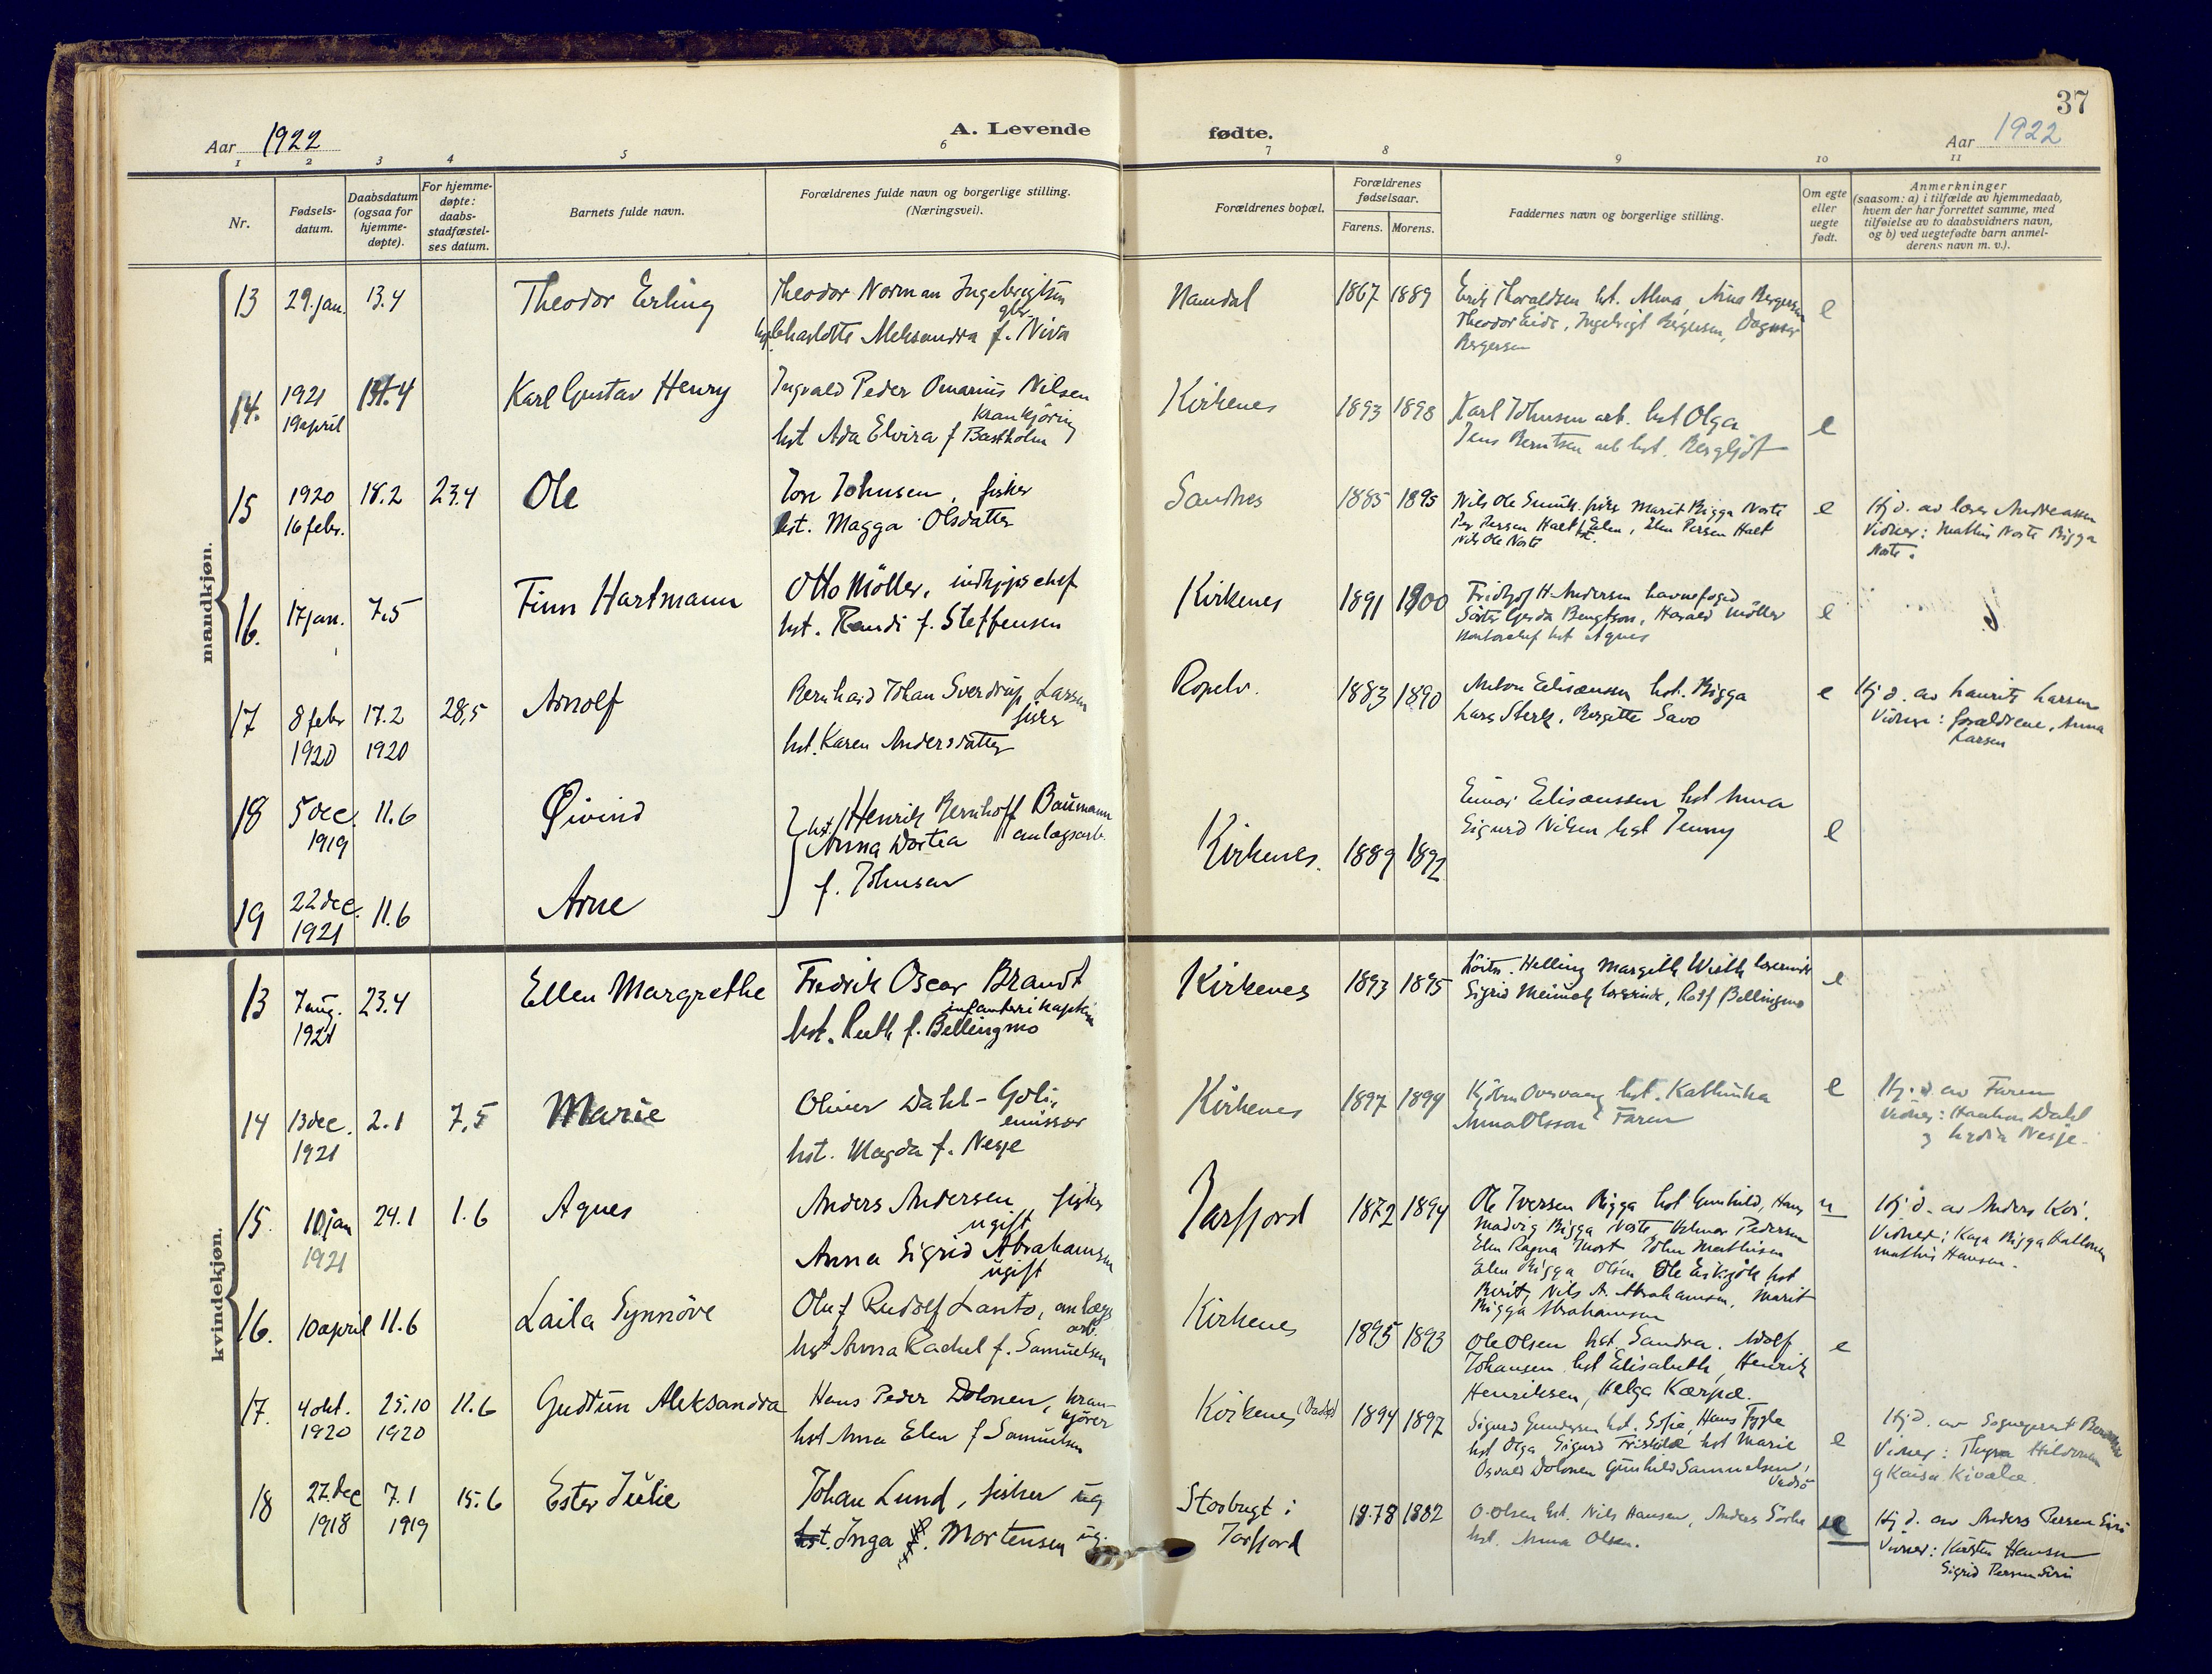 37
Aar 1922
A. Levende fødte.
Aar 1922
1 2 3 4 5 6 7 8 9 10 11
Nr.
Fødsels-
datum.
Daabsdatum
(ogsaa for
hjemme-
døpte).
For hjemme-
døpte:
daabs-
stadfæstel-
ses datum.
Barnets fulde navn.
Forældrenes fulde navn og borgerlige stilling.
(Næringsvei).
Forældrenes bopæl.
Forældrenes
fødselsaar.
Farens. Morens.
Faddernes navn og borgerlige stilling.
Om egte
eller
uegte
født.
Anmerkninger
(saasom: a) i tilfælde av hjemmedaab,
hvem der har forrettet samme, med
tilføielse av to daabsvidners navn,
og b) ved uegtefødte barn anmel-
derens navn m. v.).
mandkjøn.
13
29. jan.
13.4
Theodor Erling
Theodor Norman Ingebrigtsen
Charlotte Aleksandra f. Niva
1867 1889
Erik Thoraldsen hst. Alma, Anna Bergersen
Theodor Eide, Ingebrigt Bergersen, Dagmar
Bergersen
e
14.
1921
19 april
4
Karl Gustav Henry
Ingvald Peder Omarius Nilsen
krankjöring
hst Ada Elvira f Bastholm
Kirkenes
1893 1898
Karl Johnsen arb. hst Olga
Jens Berntsen arb hst. Bergljót
e
15
1920
16 febr.
18.2
23.4
Ole
Johnsen, fisker
hst. Magga Olsdatter
Sandnes
1885 1895
Nils Ole fisker Marit Bigga Noste
Per Persen Halt hst. Elen, Elen Persen Halt
Nils Ole Noste
e
Hj d. av lærer Andreassen
Vidner: Mathis Noste Bigga
Noste.
16.
17 jan.
7.5
Finn Hartmann
Otto Möller, indkjøpschef
hst. Randi f. Steffensen
Kirkenes
1891 1900
Fridtjof H. Andersen havnefoged
Söster Gerda Bengtson, Harald Möller
kontorchef hst Agnes
e
17
8 febr
1920
17.2
1920
28,5
Arnolf
Bernhard Johan Sverdrup Larsen
fisker
hst. Karen Andersdatter
Ropelv.
1883 1890
Anton Eliseussen hst. Bigga
Lars Sterk, Bergitte Savo
e
Hj d. av Laurits Larsen
Vidner: forældrene, Anna
Larsen
18
5 dec.
1919
11.6
Øivind
hst. Henrik Bernhoff Baumann
Anna Dortea anlægsarb.
f. Johnsen
Kirkenes.
1889 1892
Einar Eliseussen hst Anna
Sigurd Nilsen hst Jenny
e
19
22 dec.
1921
11.6
Arne
kvindekjøn.
13
7 aug.
1921
23.4
Ellen Margrethe
Fredrik Oscar Brandt
infanterikaptein
hst. Ruth f. Bellingmo
Kirkenes
1893 1895
Helling Margith Wirth lærerinde
Sigrid lærerinde, Rolf Bellingmo
e
14
13 dec.
1921
2.1
7,5
Marie
Oliver Dahl-Goli,
emissær
hst. Magda f. Nesje
Kirkenes
1897 1899
hst. Kathinka
Anna Olsson Faren
e
Hj. d. av Faren
Vidner: Haakon Dahl
og Lydia Nesje.
15.
10 jan
1921
24.1
1.6
Agnes
Anders Andersen, fisker
ugift
Anna Sigrid Abrahamsen
ugift
Jarfjord
1872 1894
Ole Iversen Bigga hst Gunhild, Hans
Madvig Bigga Noste Hilmar Pedersen
Elen Ragna Mort John Mathisen
Elen Bigga Olsen Ole Eriksjök hst
Berit, Nils A. Abrahamsen, Marit
Bigga Abrahamsen
u
Hj. d. av Anders
Vidner: Kaja Bigga Kallonen
Mathis Hansen.
16.
10 april
11.6
Laila Synnöve
Oluf Rudolf Lanto, anlægs
arb.
hst Anna Rachel f. Samuelsen
Kirkenes
1895 1893
Ole Olsen hst. Sandra. Adolf
Johansen hst Elisabeth, Henrik
Henriksen, Helga Kærpæ.
e
17.
4 okt.
1920
25.10
1920
11.6
Gudrun Aleksandra
Hans Peder Dolonen, kran-
kjörer
hst Anna Elen f Samuelsen
Kirkenes (Vadsö)
1894 1897
Sigurd Gundersen hst. Sofie, Hans Fygle
hst Olga Sigurd hst Marie
Osvald Dolonen Gunhild Samuelsen,
Vadsö
e
Hj d. av Sogneprest
Vidner: Thyra Hildonen
og Kaisa Kivælæ.
18
27. dec
1918
7.1
1919
15.6
Ester Julie
Johan Lund, fisker ug
hst. Inga f. Mortensen ug.
Storbugt i
Jarfjord
1878 1882
O. Olsen hst. Nils Hansen, Anders
hst. Anna Olsen.
Hj d. av Anders Persen Siri
Vidner: Kirsten Hansen
Sigrid Persen Siri